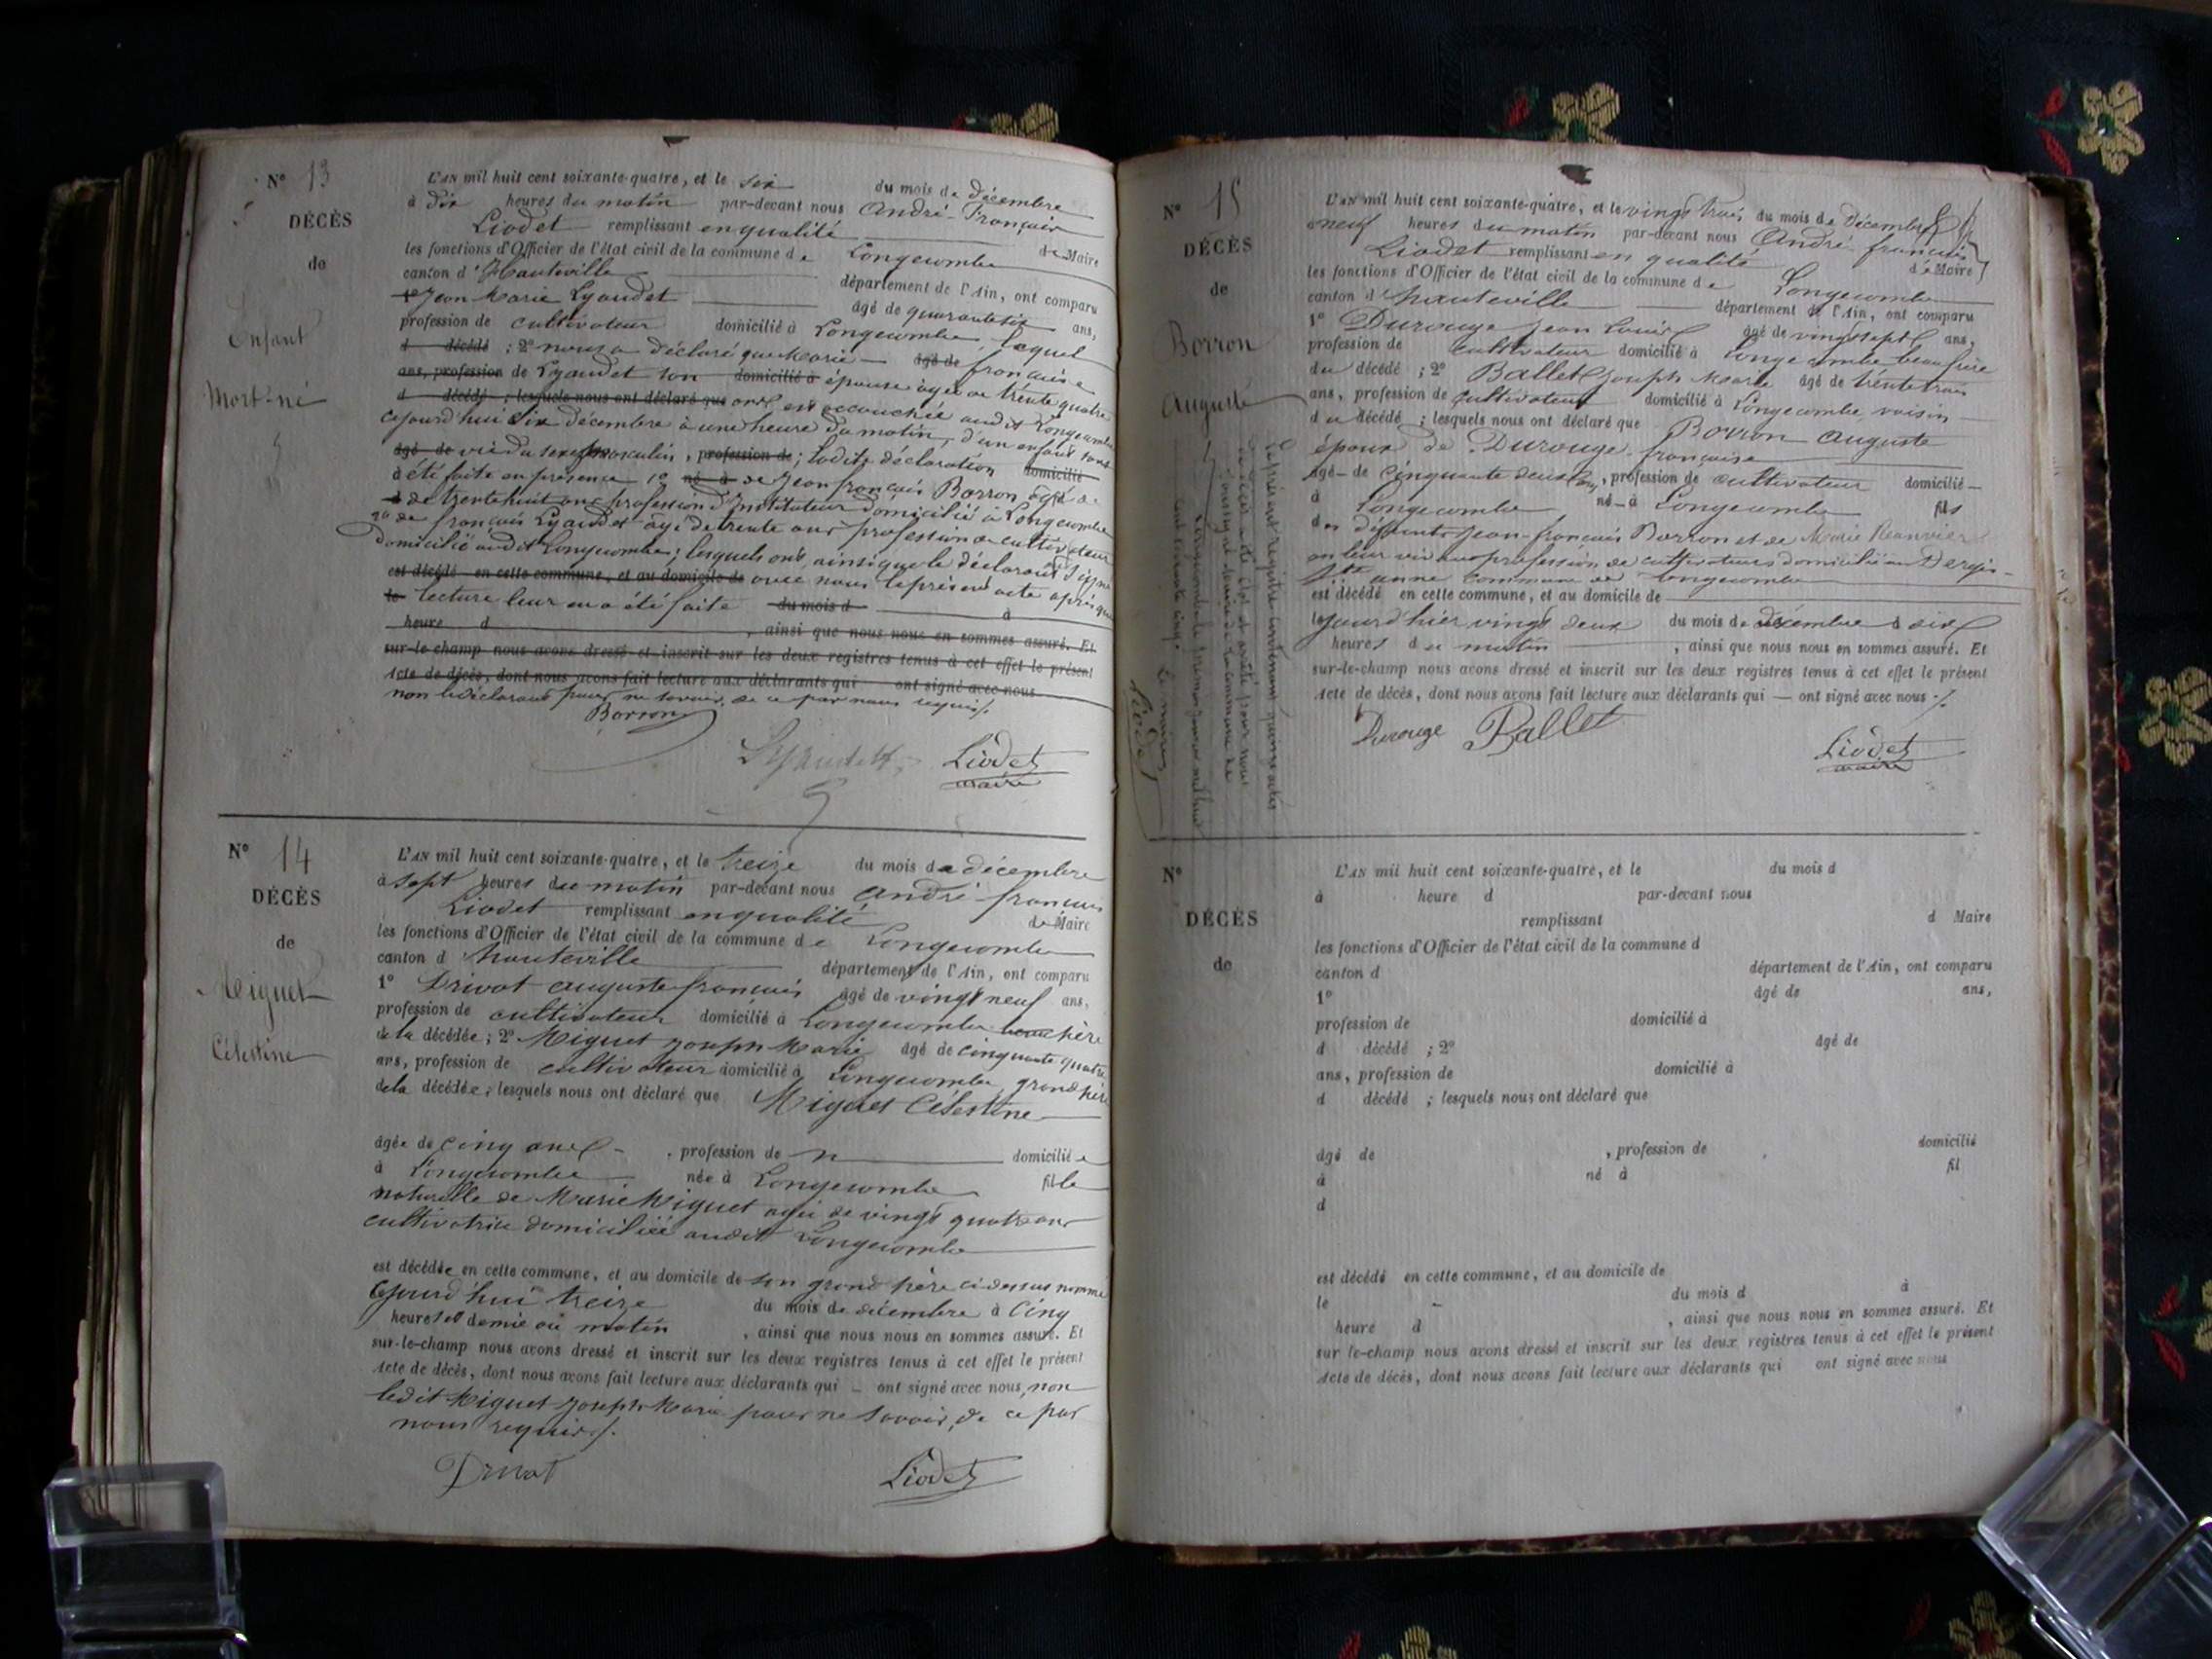 N° 13
DÉCÈS
de
Enfant
Mort-né
L'AN mil huit cent soixante-quatre, et le six du mois de décembre
à dix heures du matin par-devant nous André-François
Liodet remplissant en qualité de Maire
les fonctions d'Officier de l'état civil de la commune de Longecombe
canton d'Hauteville département de l'Ain, ont comparu
1° Jean Marie Lyaudet âgé de quarante six ans,
profession de cultivateur domicilié à Longecombe lequel
d décédé ; 2° nous a déclaré que Marie âgé de françoise
ans, profession de Lyaudet son domicilié à épouse âgée de trente quatre
d décédé ; lesquels nous ont déclaré que ans, est accouchée audit Longecombe
cejourd'hui six décembre à une heure du matin, d'un enfant sans
âgé de vie du sexe masculin, profession de ; ladite déclaration domicilié
à été faite en présence 1° né à de Jean françois Borron âgé de
d de trente huit ans profession d'Instituteur domicilié à Longecombe
2° de françois Lyaudet âgé de trente ans profession de cultivateur
domicilié audit Longecombe ; lesquels ont, ainsi que le déclarant signé
est décédé en cette commune, et au domicile de avec nous le présent acte après que
le lecture leur en a été faite du mois d à
heure d , ainsi que nous nous en sommes assuré. Et
sur-le-champ nous avons dressé et inscrit sur les deux registres tenus à cet effet le présent
Acte de décès, dont nous avons fait lecture aux déclarants qui ont signé avec nous
non le déclarant pour ne savoir, de ce par nous requis ./.
Borron
Lyaudet Liodet
maire
N° 14
DÉCÈS
de
Miguet
Célestine
L'AN mil huit cent soixante-quatre, et le treize du mois de décembre
à sept heures du matin par-devant nous André-françois
Liodet remplissant en qualité de Maire
les fonctions d'Officier de l'état civil de la commune de Longecombe
canton d Hauteville département de l'Ain, ont comparu
1° Drivot auguste françois âgé de vingt neuf ans,
profession de cultivateur domicilié à Longecombe beau père
de la décédée ; 2° Miguet joseph Marie âgé de cinquante quatre
ans, profession de cultivateur domicilié à Longecombe, grand père
de la décédée ; lesquels nous ont déclaré que Miguet Célestine
âgée de cinq ans , profession de domiciliée
à Longecombe née à Longecombe fille
naturelle de Marie Miguet agée de vingt quatre ans
cultivatrice domiciliée audit Longecombe
est décédée en cette commune, et au domicile de son grand père ci dessus nommé
cejourd'hui treize du mois de décembre à cinq
heures et demie du matin , ainsi que nous nous en sommes assuré. Et
sur-le-champ nous avons dressé et inscrit sur les deux registres tenus à cet effet le présent
Acte de décès, dont nous avons fait lecture aux déclarants qui ont signé avec nous, non
ledit Miguet joseph Marie pour ne savoir, de ce par
nous requis ./.
Drivot Liodet
N° 15
DÉCÈS
de
Borron
Auguste
Le présent registre contenant quinze actes
de décès a été clos et arrêté par nous
soussigné maire de la commune de
Longecombe le premier janvier mil huit
cent soixante cinq. Le maire
Liodet
L'AN mil huit cent soixante-quatre, et le vingt trois du mois de décembre
à neuf heures du matin par-devant nous André-françois
Liodet remplissant en qualité de Maire
les fonctions d'Officier de l'état civil de la commune de Longecombe
canton d'hauteville département de l'Ain, ont comparu
1° Durouge Jean Louis âgé de vingt sept ans,
profession de cultivateur domicilié à Longecombe beau frère
du décédé ; 2° Ballet joseph Marie âgé de trente trois
ans, profession de cultivateur domicilié à Longecombe voisin
du décédé ; lesquels nous ont déclaré que Borron Auguste
époux de Durouge françoise
âgé de cinquante deux ans, profession de cultivateur domicilié
à Longecombe né à Longecombe fils
des défunts Jean-françois Borron et de Marie
en leur vivant profession de cultivateurs domiciliés au Dergis
Ste anne commune de Longecombe
est décédé en cette commune, et au domicile de
le jourd'hier vingt deux du mois de décembre à dix
heures du matin , ainsi que nous nous en sommes assuré. Et
sur-le-champ nous avons dressé et inscrit sur les deux registres tenus à cet effet le présent
Acte de décès, dont nous avons fait lecture aux déclarants qui — ont signé avec nous ./.
Durouge Ballet Liodet
maire
N°
DÉCÈS
de
L'AN mil huit cent soixante-quatre, et le du mois d
à heure d par-devant nous
remplissant d Maire
les fonctions d'Officier de l'état civil de la commune d
canton d département de l'Ain, ont comparu
1° âgé de ans,
profession de domicilié à
d décédé ; 2° âgé de
ans, profession de domicilié à
d décédé ; lesquels nous ont déclaré que
âgé de , profession de domicilié
à né à fil
d
est décédé en cette commune, et au domicile de
le du mois d à
heure d , ainsi que nous nous en sommes assuré. Et
sur le-champ nous avons dressé et inscrit sur les deux registres tenus à cet effet le présent
Acte de décès, dont nous avons fait lecture aux déclarants qui ont signé avec nous